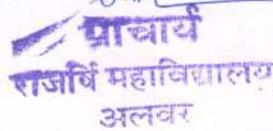 प्राचार्य
राजर्षि महाविद्यालय
अलवर